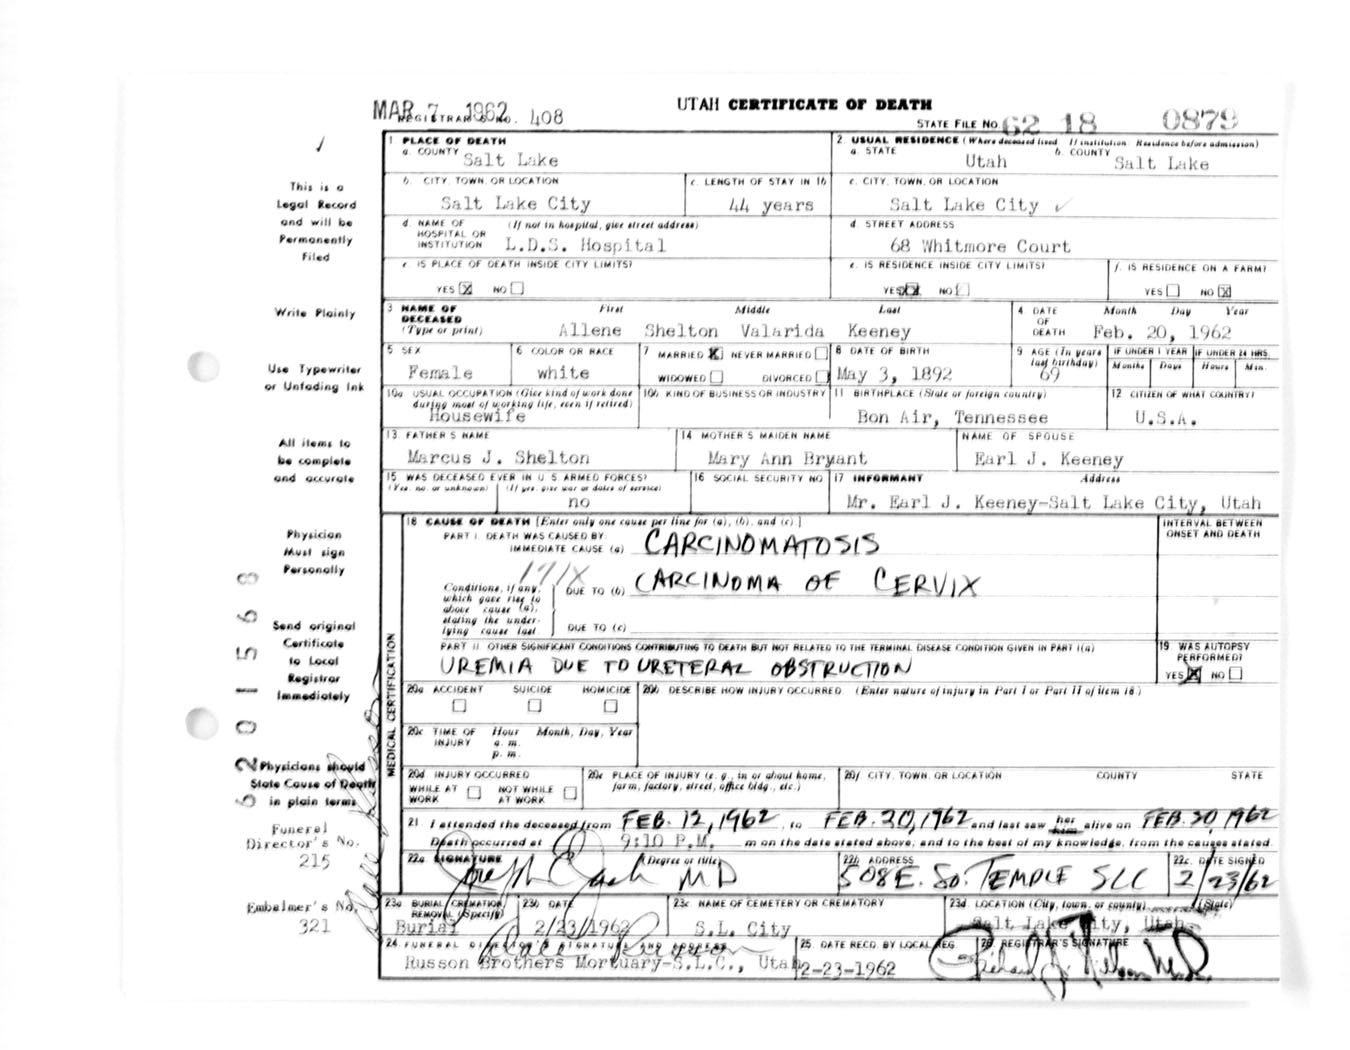 MAR 7 1962
REGISTRAR'S NO. 408
UTAH CERTIFICATE OF DEATH
STATE FILE NO. 62 18 0879
1 PLACE OF DEATH
a. COUNTY
Salt Lake
2. USUAL RESIDENCE (Where deceased lived. If institution: Residence before admission)
a. STATE
Utah
b. COUNTY
Salt Lake
b. CITY, TOWN, OR LOCATION
Salt Lake City
c. LENGTH OF STAY IN 1b
44 years
c. CITY, TOWN, OR LOCATION
Salt Lake City
d. NAME OF HOSPITAL OR INSTITUTION
(If not in hospital, give street address)
L.D.S. Hospital
d. STREET ADDRESS
68 Whitmore Court
e. IS PLACE OF DEATH INSIDE CITY LIMITS?
YES X NO
e. IS RESIDENCE INSIDE CITY LIMITS?
YES XX NO
f. IS RESIDENCE ON A FARM?
YES NO X
3 NAME OF DECEASED
(Type or print)
First Middle Last
Allene Shelton Valarida Keeney
4 DATE OF DEATH
Month Day Year
Feb. 20, 1962
5 SEX
Female
6 COLOR OR RACE
white
7 MARRIED X NEVER MARRIED
WIDOWED DIVORCED
8 DATE OF BIRTH
May 3, 1892
9 AGE (In years last birthday)
69
IF UNDER 1 YEAR
Months Days
IF UNDER 24 HRS.
Hours Min.
10a USUAL OCCUPATION (Give kind of work done during most of working life, even if retired)
Housewife
10b KIND OF BUSINESS OR INDUSTRY
11 BIRTHPLACE (State or foreign country)
Bon Air, Tennessee
12 CITIZEN OF WHAT COUNTRY?
U.S.A.
13. FATHER'S NAME
Marcus J. Shelton
14 MOTHER'S MAIDEN NAME
Mary Ann Bryant
NAME OF SPOUSE
Earl J. Keeney
15 WAS DECEASED EVER IN U S ARMED FORCES?
(Yes, no, or unknown) (If yes, give war or dates of service)
no
16 SOCIAL SECURITY NO
17 INFORMANT Address
Mr. Earl J. Keeney-Salt Lake City, Utah
18 CAUSE OF DEATH [Enter only one cause per line for (a), (b), and (c).]
INTERVAL BETWEEN ONSET AND DEATH
PART I. DEATH WAS CAUSED BY:
IMMEDIATE CAUSE (a) CARCINOMATOSIS
171X
Conditions, if any, which gave rise to above cause (a), stating the underlying cause last
DUE TO (b) CARCINOMA OF CERVIX
DUE TO (c)
PART II OTHER SIGNIFICANT CONDITIONS CONTRIBUTING TO DEATH BUT NOT RELATED TO THE TERMINAL DISEASE CONDITION GIVEN IN PART I(a)
UREMIA DUE TO URETERAL OBSTRUCTION
19. WAS AUTOPSY PERFORMED?
YES X NO
MEDICAL CERTIFICATION
20a ACCIDENT SUICIDE HOMICIDE
20b DESCRIBE HOW INJURY OCCURRED (Enter nature of injury in Part I or Part II of item 18.)
20c TIME OF INJURY
Hour Month, Day, Year
a. m.
p. m.
20d INJURY OCCURRED
WHILE AT WORK NOT WHILE AT WORK
20e PLACE OF INJURY (e. g., in or about home, farm, factory, street, office bldg., etc.)
20f CITY, TOWN, OR LOCATION COUNTY STATE
21. I attended the deceased from FEB. 12, 1962, to FEB. 20, 1962 and last saw her him alive on FEB. 20, 1962
Death occurred at 9:10 P.M. m on the date stated above; and to the best of my knowledge, from the causes stated.
22a SIGNATURE (Degree or title)
MD
22b ADDRESS
508 E. SO. TEMPLE SLC
22c. DATE SIGNED
2/23/62
23a BURIAL, CREMATION, REMOVAL (Specify)
Burial
23b DATE
2/23/1962
23c NAME OF CEMETERY OR CREMATORY
S.L. City
23d LOCATION (City, town, or county) (State)
Salt Lake City, Utah
24 FUNERAL DIRECTOR'S SIGNATURE AND ADDRESS
Russon Brothers Mortuary-S.L.C., Utah
25. DATE RECD. BY LOCAL REG.
2-23-1962
26. REGISTRAR'S SIGNATURE
This is a
Legal Record
and will be
Permanently
Filed
Write Plainly
Use Typewriter
or Unfading Ink
All items to
be complete
and accurate
Physician
Must sign
Personally
Send original
Certificate
to Local
Registrar
Immediately
Physicians should
State Cause of Death
in plain terms
Funeral
Director's No.
215
Embalmer's No.
321